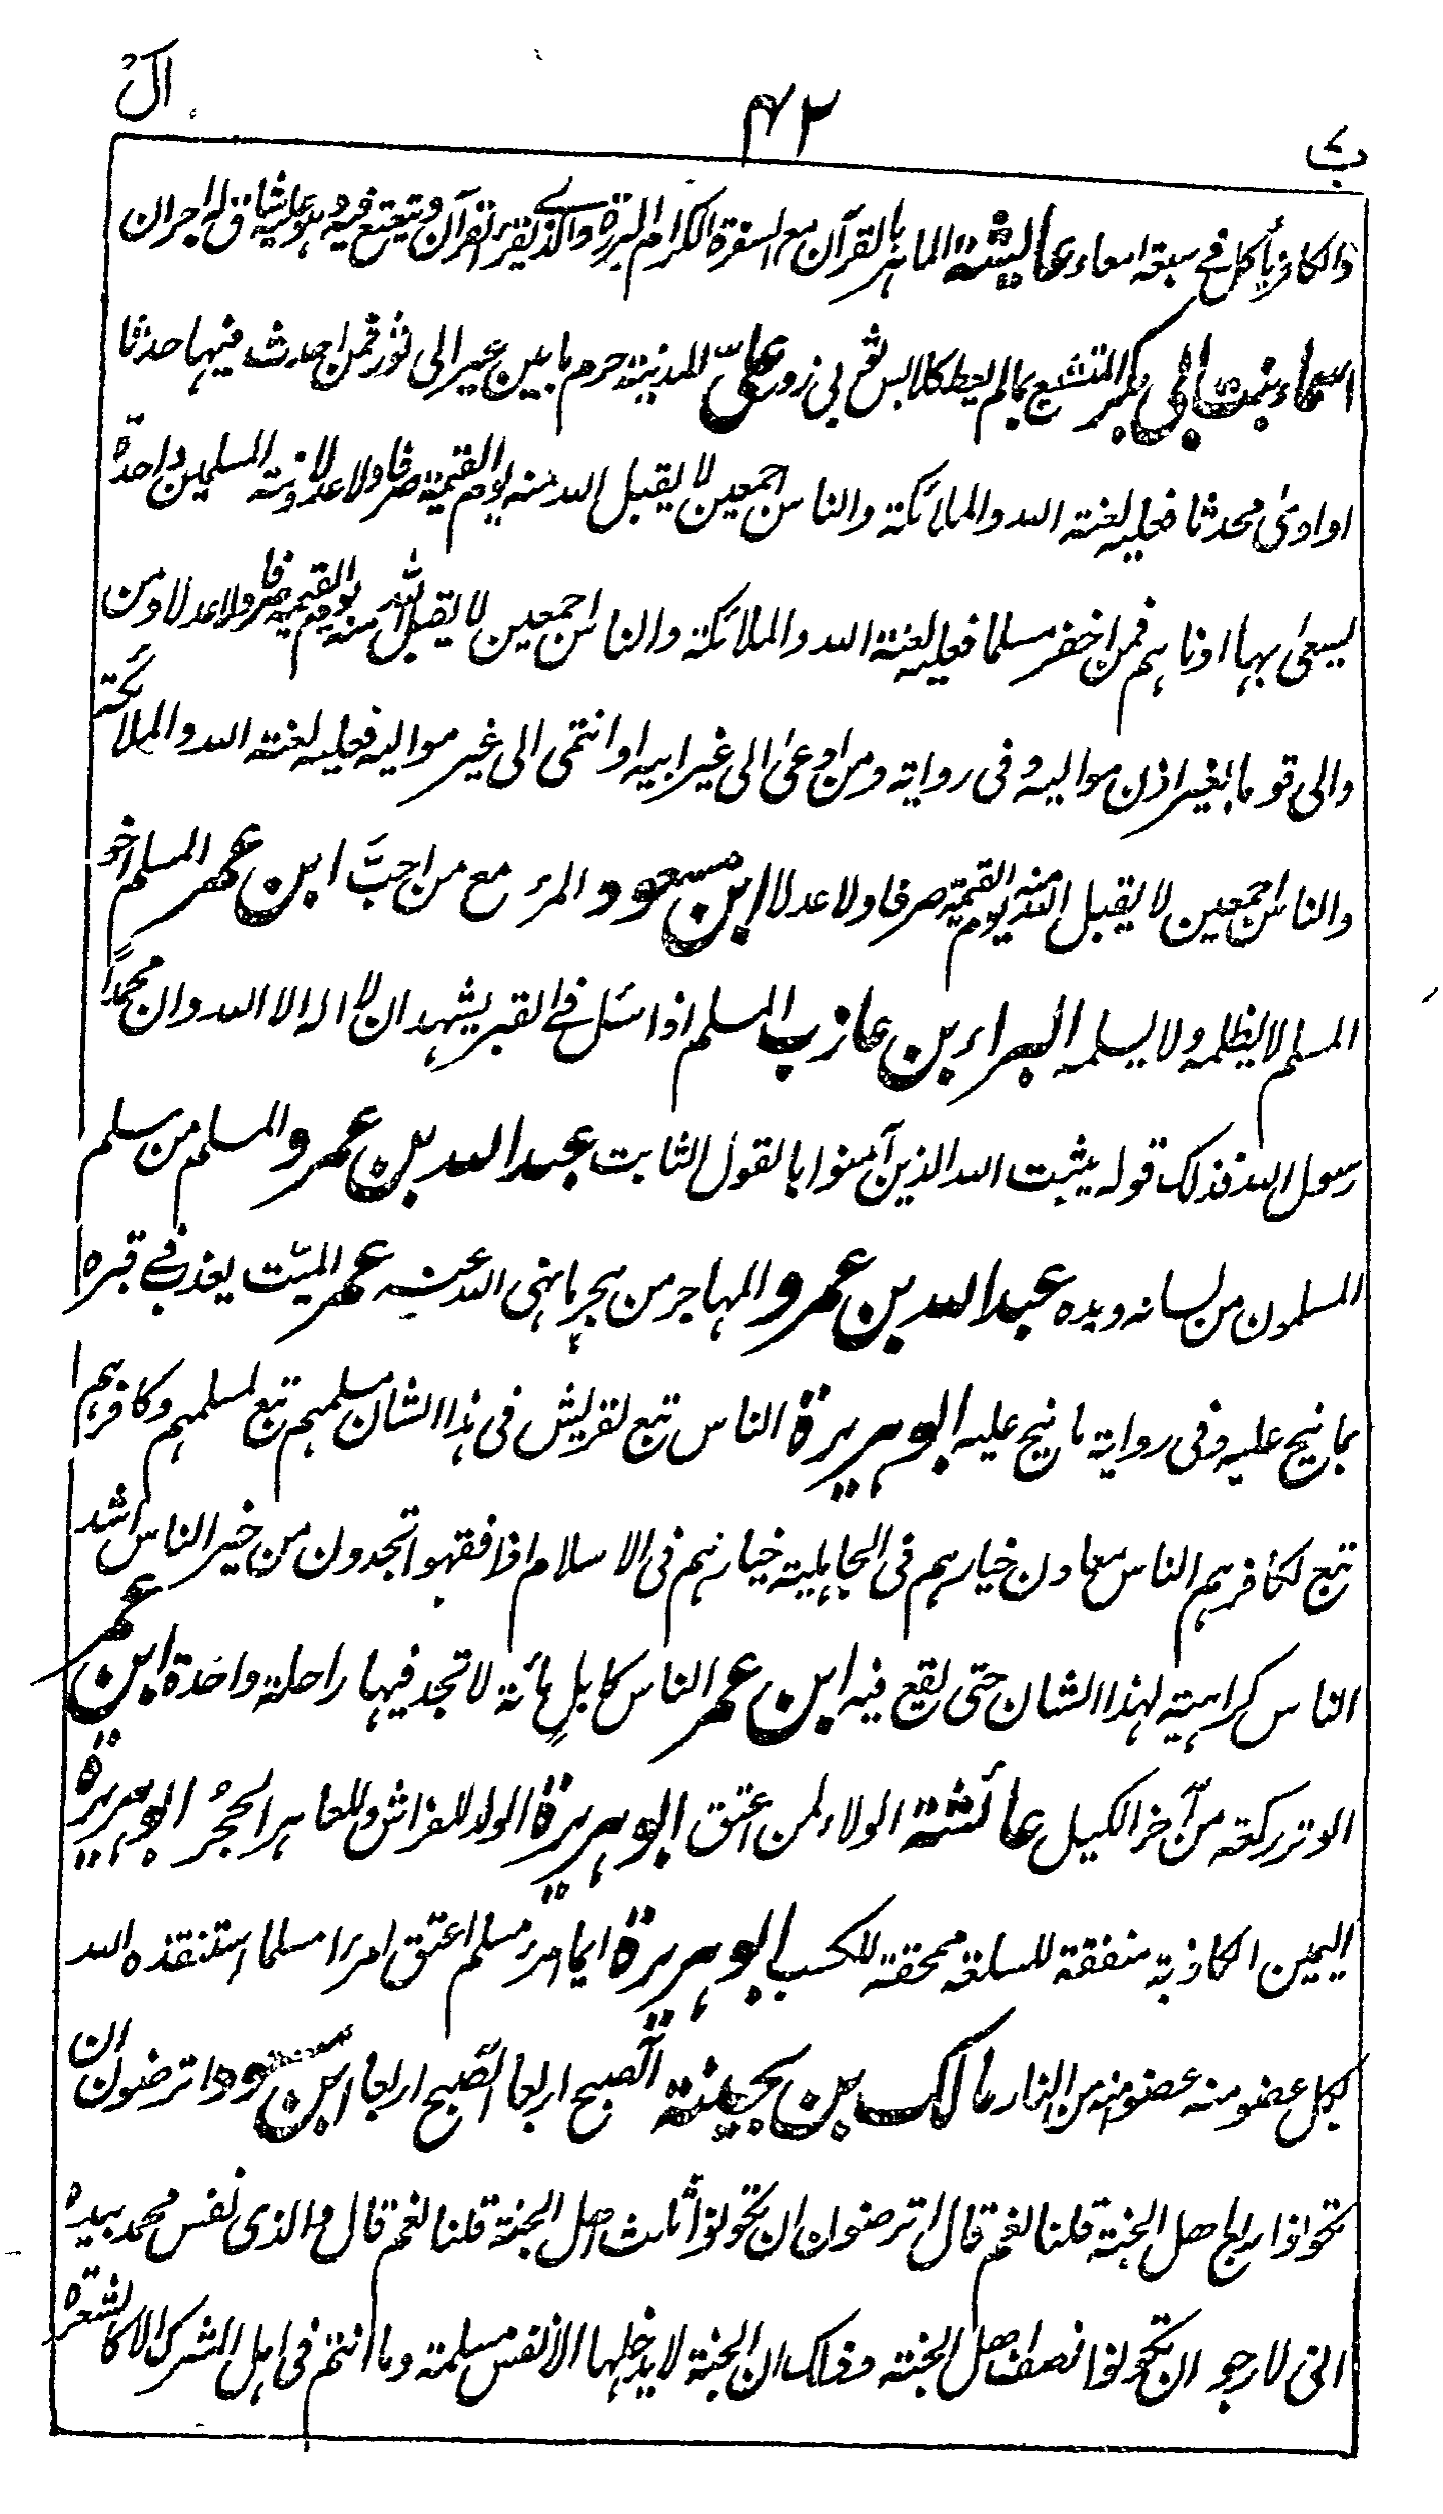 ال
۴۲
ب
والكافر يأكل فى سبعة امعاء عايشة الماهر بالقرآن مع السفرة الكرام البررة والذى يقرء القرآن ويتعتع فيه وهو عليه شاق له اجران
اسماء بنت ابى بكر المتشبع بما لم يعط كلابس ثوبى زور على المدينة حرم ما بين عير الى ثور فمن احدث فيها حدثا
او اوى محدثا فعليه لعنة الله والملائكة والناس اجمعين لا يقبل الله منه يوم القيمة صرفا ولا عدلا ذمة المسلمين واحدة
يسعى بها ادناهم فمن اخفر مسلما فعليه لعنة الله والملائكة والناس اجمعين لا يقبل الله منه يوم القيمة صرفا ولا عدلا ومن
والى قوما بغير اذن مواليه وفى رواية ومن ادعى الى غير ابيه او انتمى الى غير مواليه فعليه لعنة الله والملائكة
والناس اجمعين لا يقبل الله منه يوم القيمة صرفا ولا عدلا ابن مسعود المرء مع من احبّ ابن عمر المسلم اخو
المسلم لا يظلمه ولا يسلمه البراء بن عازب المسلم اذا سئل فى القبر يشهد ان لا اله الا الله وان محمدًا
رسول الله فذلك قوله يثبت الله الذين آمنوا بالقول الثابت عبد الله بن عمرو المسلم من سلم
المسلمون من لسانه ويده عبد الله بن عمرو المهاجر من هجر ما نهى الله عنه عمر الميّت يعذب فى قبره
بما نيح عليه وفى رواية ما نيح عليه ابو هريرة الناس تبع لقريش فى هذا الشان مسلمهم تبع لمسلمهم وكافرهم
تبع لكافرهم الناس معادن خيارهم فى الجاهلية خيارهم فى الاسلام اذا فقهوا تجدون من خير الناس اشد
الناس كراهية لهذا الشان حتى يقع فيه ابن عمر الناس كابلٍ مائة لا تجد فيها راحلة واحدة ابن عمر
الوتر ركعة من آخر الليل عائشة الولاء لمن اعتق ابو هريرة الولد للفراش وللعاهر الحجرُ ابو هريرة
اليمين الكاذبة منفقة للسلعة ممحقة للكسب ابو هريرة ايما امرء مسلم اعتق امرا مسلما استنقذه الله
بكل عضو منه عضوا منه من النار مالك بن بحينة آلصبح اربعا آلصبح اربعا ابن مسعود اترضون ان
تكونوا ربع اهل الجنة قلنا نعم قال اترضون ان تكونوا ثلث اهل الجنة قلنا نعم قال والذى نفس محمد بيده
انى لارجو ان تكونوا نصف اهل الجنة وذلك ان الجنة لا يدخلها الا نفس مسلمة وما انتم فى اهل الشرك الا كالشعرة